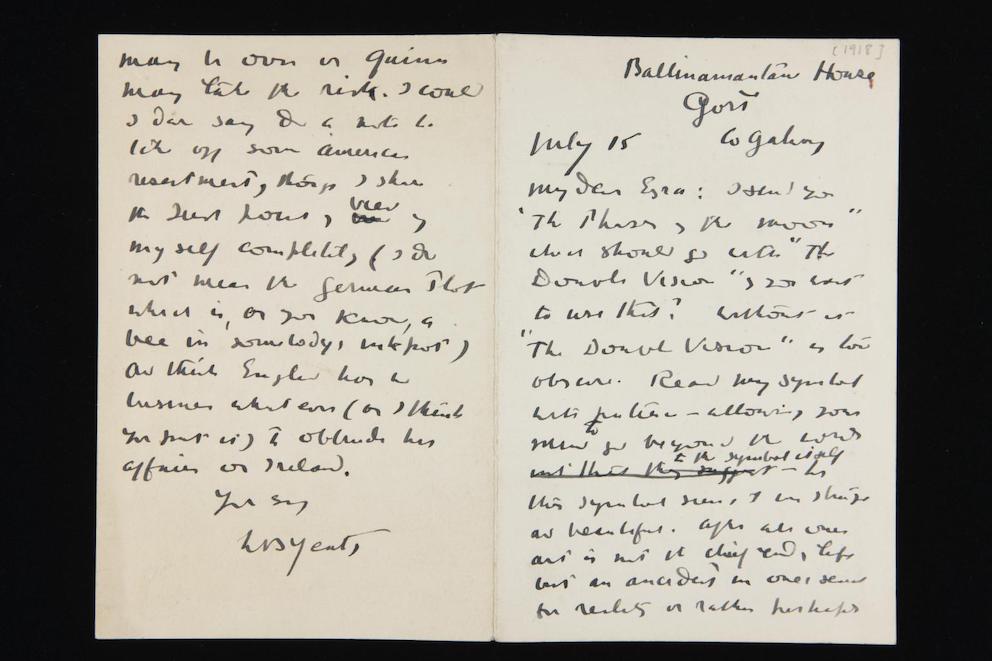 [1918]
Ballinamantane House
Gort
July 15 Co Galway
My dear Ezra: I send you
"The Phases of the Moon"
which should go with "The
Double Vision" if you want
to use that? Without it
"The Double Vision" is too
obscure. Read my symbol
with patience – allowing your
mind to go beyond the words
to the symbol itself
– for
this symbol seems to me strange
and beautiful. After all ones
art is not the chief end of life
but an accident in ones search
for reality or rather perhaps
may be over or Quinn
may take the risk. I could
I dare say do a note to
take off some American
resentment, though I share
the point of view of
my self completely, (I do
not mean the German Plot
which is, as you know, a
bee in somebodys ink pot)
and think England has no
business whatever (as I think
you put it) to obtrude her
affairs on Ireland.
Yrs ey
WBYeats